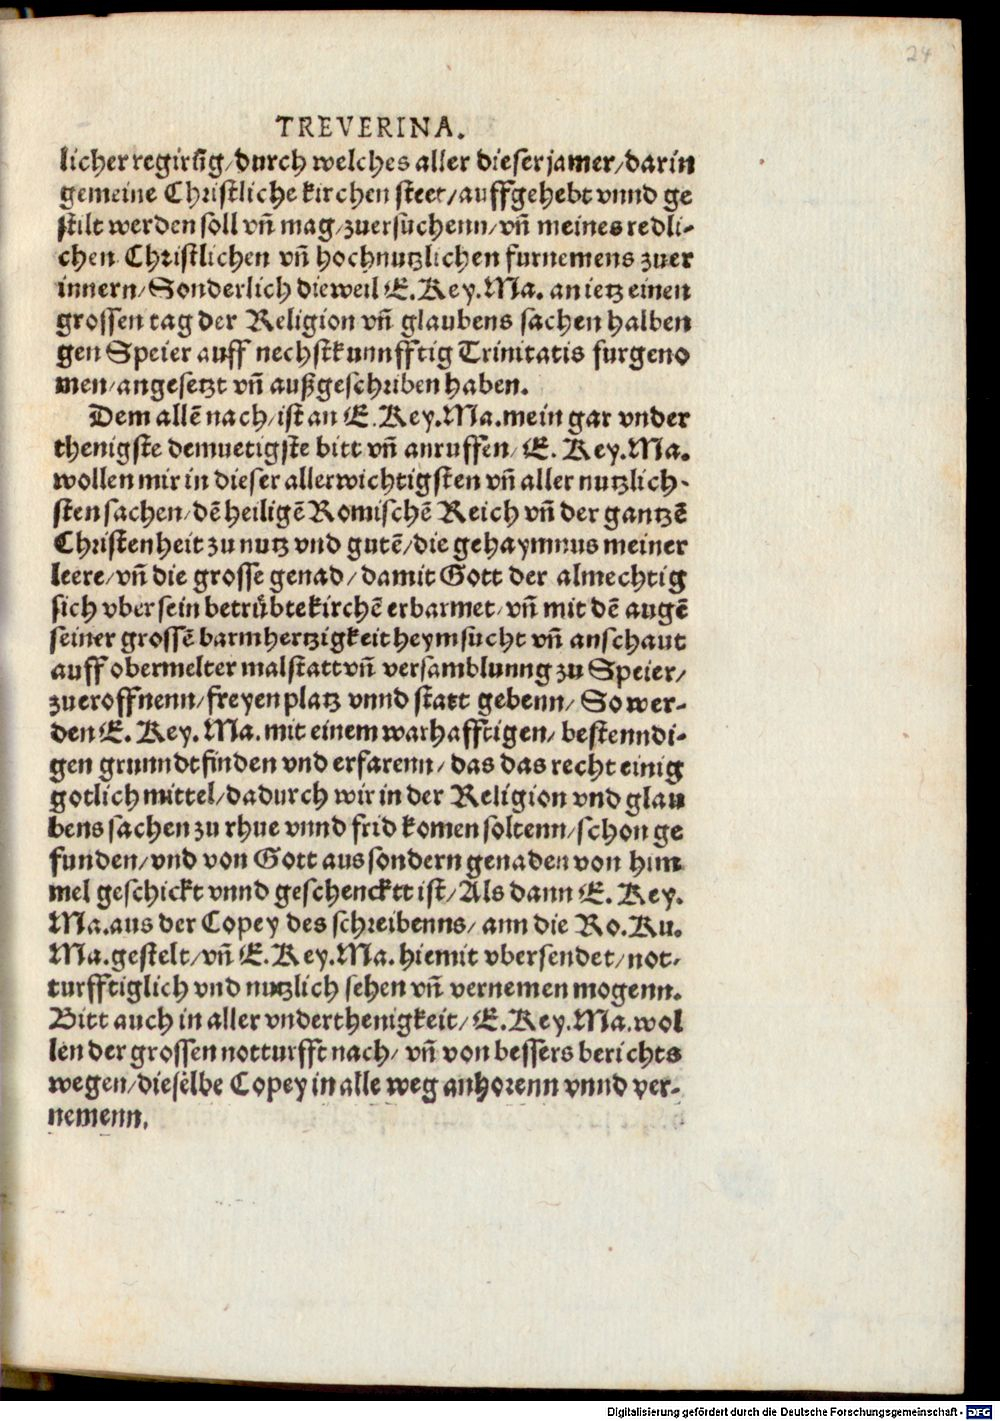 24
TREVERINA.
licher regirũg/durch welches aller dieser jamer/darin
gemeine Christliche kirchen steet/auffgehebt vnnd ge
stilt werden soll vñ mag/zuersuchenn/vñ meines redli-
chen Christlichen vñ hochnutzlichen furnemens zuer
innern/Sonderlich dieweil E.Key.Ma. an ietz einen
grossen tag der Religion vñ glaubens sachen halben
gen Speier auff nechstkunnfftig Trinitatis furgeno
men/angesetzt vñ außgeschriben haben.
Dem allẽ nach/ist an E.Key.Ma.mein gar vnder
thenigste demuetigste bitt vñ anruffen/E.Key.Ma.
wollen mir in dieser allerwichtigsten vñ aller nutzlich-
sten sachen/dẽ heiligẽ Romischẽ Reich vñ der gantzẽ
Christenheit zu nutz vnd gutẽ/die gehaymnus meiner
leere/vñ die grosse genad/damit Gott der almechtig
sich vber sein betrübte kirchẽ erbarmet/vñ mit dẽ augẽ
seiner grossẽ barmhertzigkeit heymsucht vñ anschaut
auff obermelter malstatt vñ versamblunng zu Speier/
zueroffnenn/freyen platz vnnd statt gebenn/So wer-
den E.Key.Ma.mit einem warhafftigen/bestenndi-
gen grunndt finden vnd erfarenn/das das recht einig
gotlich mittel/dadurch wir in der Religion vnd glau
bens sachen zu rhue vnnd frid komen soltenn/schon ge
funden/vnd von Gott aus sondern genaden von him
mel geschickt vnnd geschencktt ist/Als dann E.Key.
Ma.aus der Copey des schreibenns/ann die Ro.Ku.
Ma.gestelt/vñ E.Key.Ma.hiemit vbersendet/not-
turfftiglich vnd nutzlich sehen vñ vernemen mogenn.
Bitt auch in aller vnderthenigkeit/E.Key.Ma.wol
len der grossen notturfft nach/vñ von bessers berichts
wegen/dieselbe Copey in alle weg anhorenn vnnd ver-
nemenn.
Digitalisierung gefördert durch die Deutsche Forschungsgemeinschaft - DFG